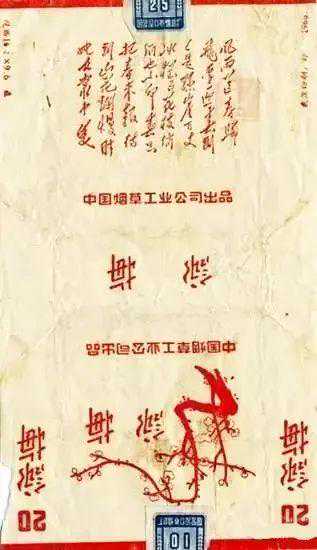 25
风雨送春归
飛雪迎春到
已是悬崖百丈
冰犹有花枝俏
俏也不争春只
把春来报待
到山花烂漫时
她在丛中笑
中国烟草工业公司出品
詠梅
中国烟草工业公司出品
詠梅
詠梅
詠梅
20
20
10